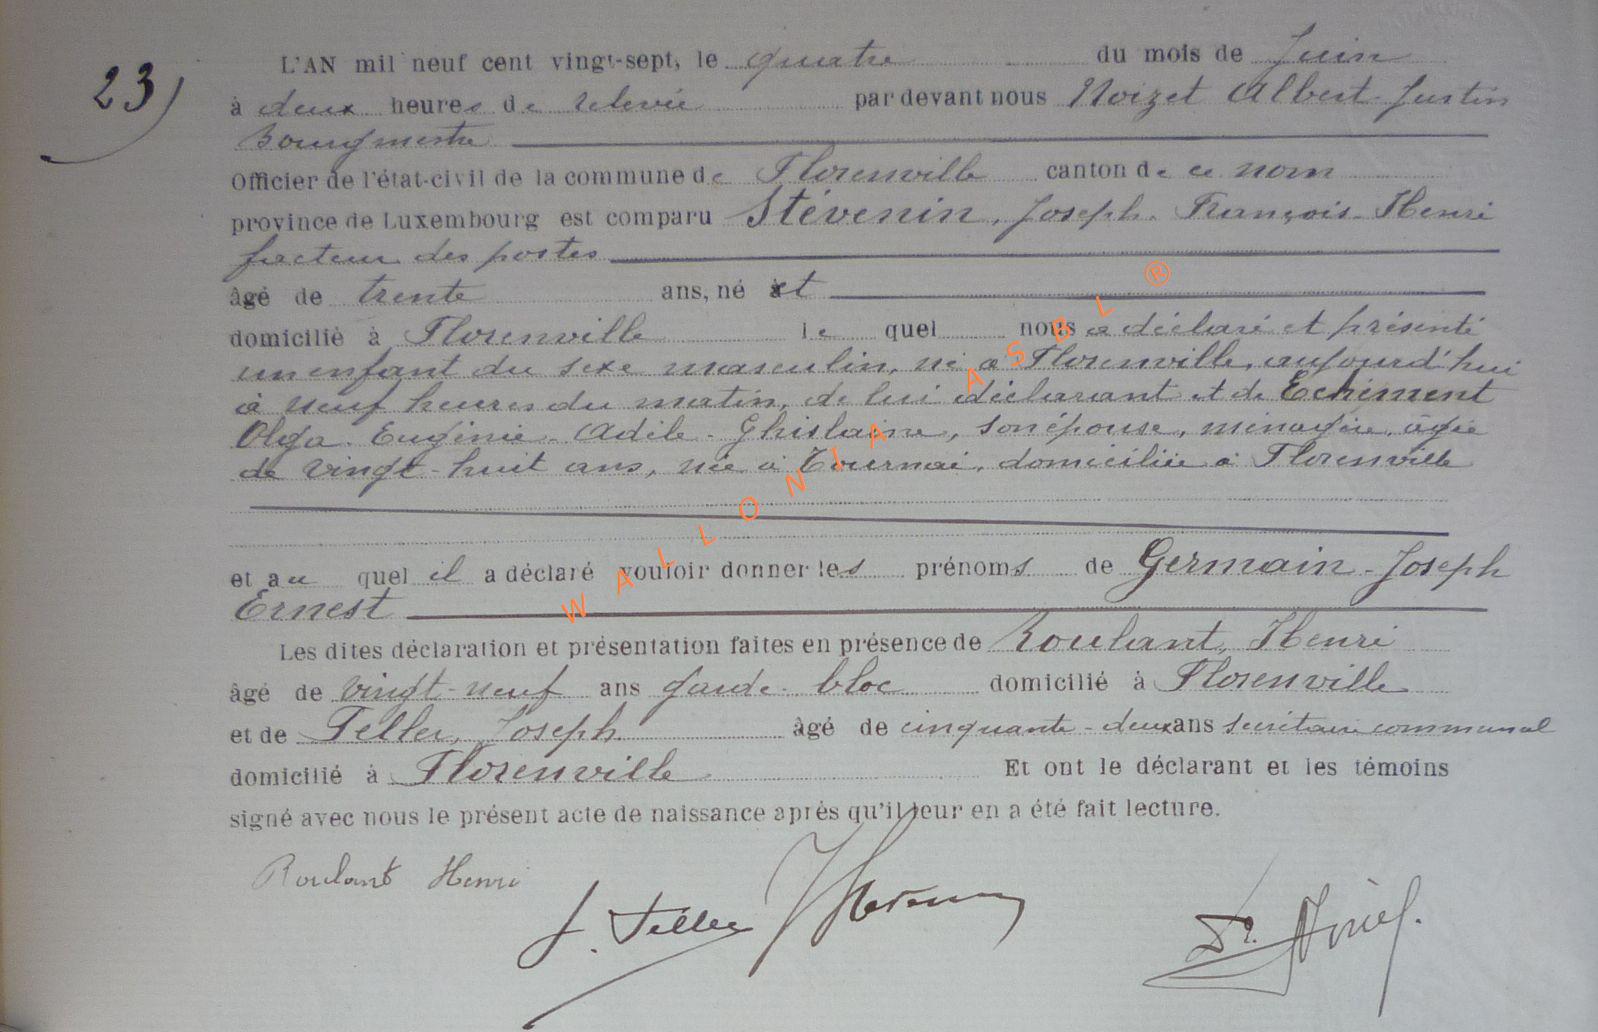 23)
L'AN mil neuf cent vingt-sept, le quatre du mois de Juin
à deux heures de relevée par devant nous Noizet Albert-Justin
Bourgmestre
Officier de l'état-civil de la commune de Florenville canton de ce nom
province de Luxembourg est comparu Stévenin, Joseph-François-Henri
facteur des postes
âgé de trente ans, né et
domicilié à Florenville le quel nous a déclaré et présenté
un enfant du sexe masculin, né à Florenville, aujourd'hui
à neuf heures du matin, de lui déclarant et de Echément
Olga-Eugénie-Adèle-Ghislaine, son épouse, ménagère, âgée
de vingt-huit ans, née à Tournai, domiciliée à Florenville
et au quel il a déclaré vouloir donner les prénoms de Germain-Joseph
Ernest
Les dites déclaration et présentation faites en présence de Roulant, Henri
âgé de vingt-neuf ans garde-bloc domicilié à Florenville
et de Feller, Joseph âgé de cinquante-deux ans secrétaire communal
domicilié à Florenville Et ont le déclarant et les témoins
signé avec nous le présent acte de naissance après qu'il leur en a été fait lecture.
Roulant Henri
J. Feller
WALLONIA ASBL ®